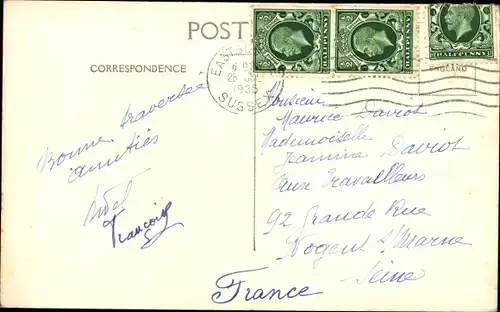 POST
CORRESPONDENCE
HALFPENNY HALFPENNY HALFPENNY
ENGLAND
EAST
28
1935
SUSSEX
Bonne traversée
amitiés
François
Monsieur
Maurice Daviot
Mademoiselle
Jeannine Daviot
Aux Travailleurs
92 Grande Rue
Nogent s/Marne
Seine
France